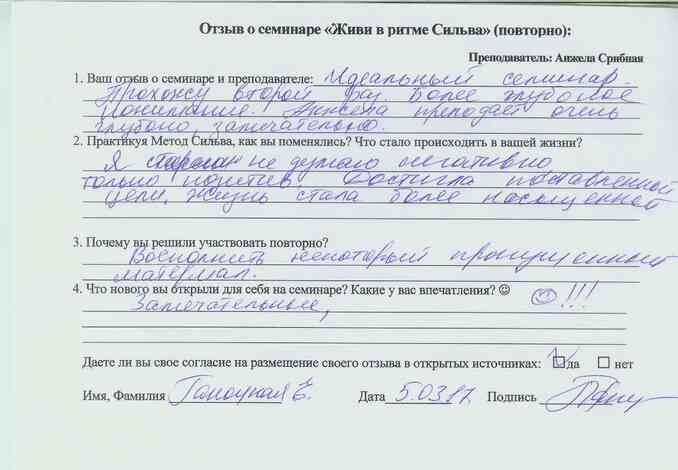 Отзыв о семинаре «Живи в ритме Сильва» (повторно):
Преподаватель: Анжела Срибная
1. Ваш отзыв о семинаре и преподавателе: Идеальный семинар.
Прохожу второй раз. Более глубокое
понимание. Анжела преподаёт очень
глубоко, замечательно.
2. Практикуя Метод Сильва, как вы поменялись? Что стало происходить в вашей жизни?
Я не думаю негативно
только позитив. Достигла поставленной
цели, жизнь стала более насыщенной
3. Почему вы решили участвовать повторно?
Восполнить некоторый пропущенный
материал.
4. Что нового вы открыли для себя на семинаре? Какие у вас впечатления? ☺ ☺!!!
Замечательные,
Даете ли вы свое согласие на размещение своего отзыва в открытых источниках: ☑ да ☐ нет
Имя, Фамилия Е. Дата 5.03.17. Подпись